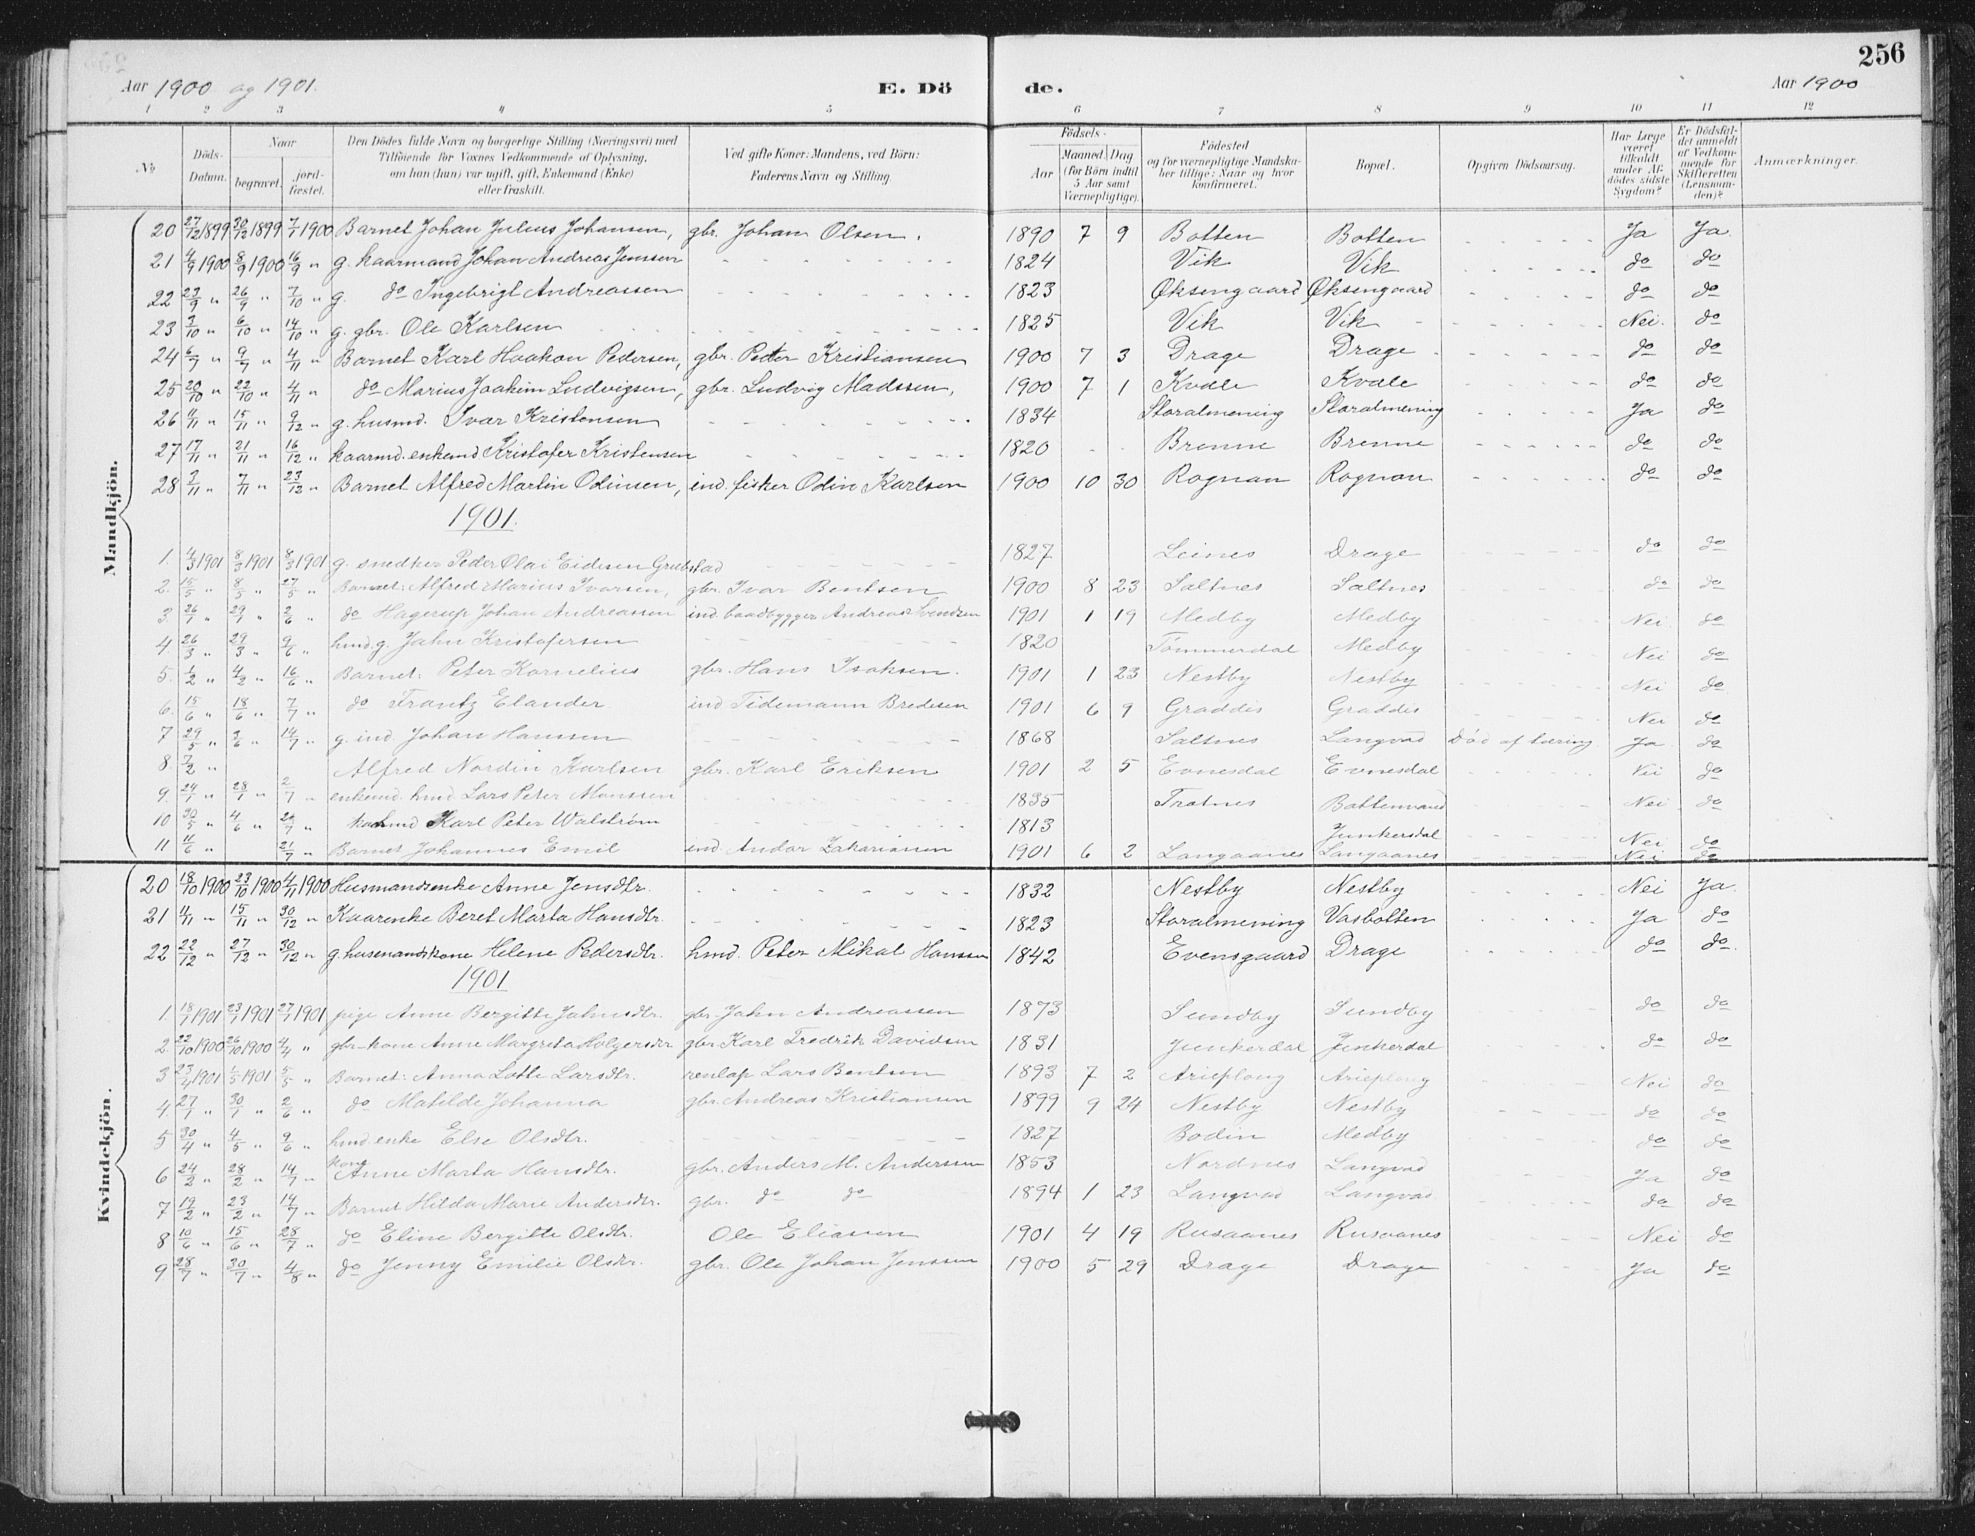 256
Aar 1900 og 1901. E. Dö de. Aar 1900
1 2 3 4 5 6 7 8 9 10 11 12
No Döds-Datum. Naar begravet. jord-fæstet. Den Dödes fulde Navn og borgerlige Stilling (Næringsvei) med Tilföiende for Voxnes Vedkommende af Oplysning, om han (hun) var ugift, gift, Enkemand (Enke) eller fraskilt. Ved gifte Koner: Mandens, ved Börn: Faderens Navn og Stilling. Födsels- Aar Maaned. Dag (for Börn indtil 5 Aar samt Værnepligtige). Födested og for værnepligtige Mandskaber tillige: Naar og hvor konfirmeret. Bopæl. Opgiven Dödsaarsag. Har Læge været tilkaldt under Afdödes sidste Sygdom? Er Dödsfaldet anmeldt af Vedkommende for Skifteretten (Lensmanden)? Anmærkninger.
Mandkjön.
20 27/12 1899 30/12 1899 7/1 1900 Barnet Johan Julius Johansen, gbr. Johan Olsen. 1890 7 9 Botten Botten Ja Ja
21 4/9 1900 8/9 1900 16/9 " g. kaarmand Johan Andreas Jenssen 1824 Vik Vik do do
22 23/9 " 26/9 " 7/10 " g. do Ingebrigt Andreassen 1823 Øksengaard Øksengaard do do
23 3/10 " 6/10 " 14/10 " g. gbr. Ole Karlsen 1825 Vik Vik Nei. do
24 6/7 " 9/7 " 4/11 " Barnet Karl Haakon Pedersen, gbr. Peter Kristiansen 1900 7 3 Drage Drage do do
25 20/10 " 22/10 " 4/11 " do Marius Joakim Ludvigsen, gbr. Ludvig Madssen, 1900 7 1 Kvæle Kvæle do do
26 11/11 " 15/11 " 9/12 " g. husmd. Ivar Kristensen 1834 Storalmening Storalmening Ja do
27 17/11 " 21/11 " 16/12 " kaarmd. enkemd Kristofer Kristensen 1820 Brenne Brenne do do
28 2/11 " 7/11 " 23/12 " Barnet Alfred Martin Odinsen, ind. fisker Odin Karlsen 1900 10 30 Rognan Rognan do do
1901.
1. 4/3 1901 8/3 1901 8/3 1901 g. snedker Peder Olai Eidisen Grubstad 1827 Leines Drage do do
2. 15/5 " 8/5 " 27/5 " Barnet: Alfred Marius Ivarsen, gbr. Ivar Bentsen 1900 8 23 Saltnes Saltnes do do
3. 26/1 " 29/1 " 2/6 " do Hagerup Johan Andreassen ind. baadbygger Andreas Svendsen 1901 1 19 Medby Medby Nei do
4 26/3 " 29/3 " 9/6 " hmd. g. Jahn Kristofersen 1820 Tømmerdal Medby Nei do
5. 1/2 " 4/2 " 16/6 " Barnet: Peter Kornelius gbr. Hans Isaksen. 1901 1 23 Nestby Nestby Nei do
6. 15/6 " 18/6 " 7/7 " do Frantz Elander ind Tidemann Bredesen 1901 6 9 Graddis Graddis Nei do
7 29/5 " 3/6 " 14/7 " g. ind. Johan Hanssen 1868 Saltnes Langvad Død af tæring Ja do
8. 7/2 " Alfred Nordin Karlsen gbr. Karl Eriksen 1901 2 5 Evnesdal Evnesdal Nei do
9. 24/1 " 28/1 " 2/7 " enkemd. hmd Lars Peter Monssen 1835 Trotnes Bottenvand Nei do
10 30/5 " 4/6 " 21/7 " Karl Peter Walstrøm 1813 Junkersdal Nei do
11 11/6 " 21/7 " Barnet Johannes Emil ind Andor Zakariassen 1901 6 2 Langaanes Langaanes Nei do
Kvindekjön.
20 18/10 1900 23/10 1900 4/11 1900 Husmandsenke Anne Jensdtr. 1832 Nestby Nestby Nei Ja
21 11/11 " 15/11 " 30/12 " Kaarenke Beret Marta Hansdtr. 1823 Storalmening Vasbotten Ja do
22 22/12 " 27/12 " 30/12 " g husmandskone Helene Pedersdtr. hmd. Peter Mikal Hanssen 1842 Evensgaard Drage do do
1901
1 18/1 1901 23/1 1901 27/1 1901 pige Anne Bergitte Jahnsdtr. gbr. Jahn Andreassen 1873 Sundby Sundby do do
2 22/10 1900 26/10 1900 4/4 " gbr-kone Anne Margreta Holgersdtr gbr Karl Fredrik Davidsen 1831 Junkerdal Junkerdal do do
3 23/4 1901 1/5 1901 5/5 " Barnet: Anna Lotte Larsdtr. renlap Lars Bentsen 1893 7 2 Arieplong Arieplong Nei do
4. 27/1 " 30/1 " 2/6 " do Matilde Johanna gbr. Andreas Kristiansen 1899 9 24 Nestby Nestby do do
5 30/4 " 4/5 " 9/6 " hmd. enke Else Olsdtr. 1827 Bodin Medby do do
6 24/2 " 28/2 " 14/7 " kone Anne Marta Hansdtr. gbr. Anders M. Andersen 1853 Nordnes Langvad Ja do
7 19/2 " 23/2 " 14/7 " Barnet Hilda Marie Andersdtr. gbr. do do 1894 1 23 Langvad Langvad do do
8 10/6 " 15/6 " 28/7 " do Eline Bergitte Olsdtr. Ole Eliassen 1901 4 19 Rusaanes Rusaanes Nei do
9 28/7 " 30/7 " 4/8 " do Jenny Emilie Olsdtr. gbr. Ole Johan Jenssen 1900 5 29 Drage Drage Ja do